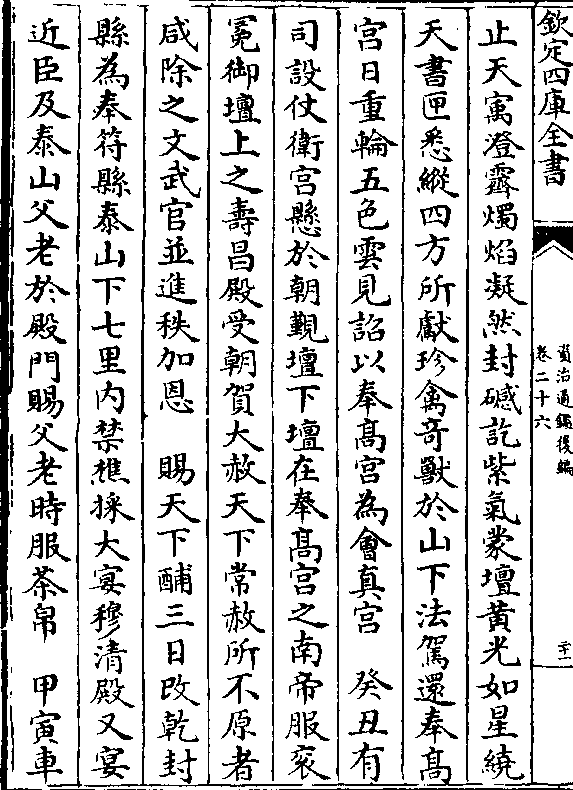 欽定四庫全書
資治通鑑後編
卷二十六
二十一
止天寓澄霽燭焰凝然封䃭訖紫氣蒙壇黃光如星繞
天書匣悉縱四方所獻珍禽竒獸於山下法駕還奉髙
宮日重輪五色雲見詔以奉髙宮為會真宮　癸丑有
司設仗衛宮懸於朝覲壇下壇在奉髙宮之南帝服衮
冕御壇上之壽昌殿受朝賀大赦天下常赦所不原者
咸除之文武官並進秩加恩　賜天下酺三日改乾封
縣為奉符縣泰山下七里內禁樵採大宴穆清殿又宴
近臣及泰山父老於殿門賜父老時服茶帛　甲寅車